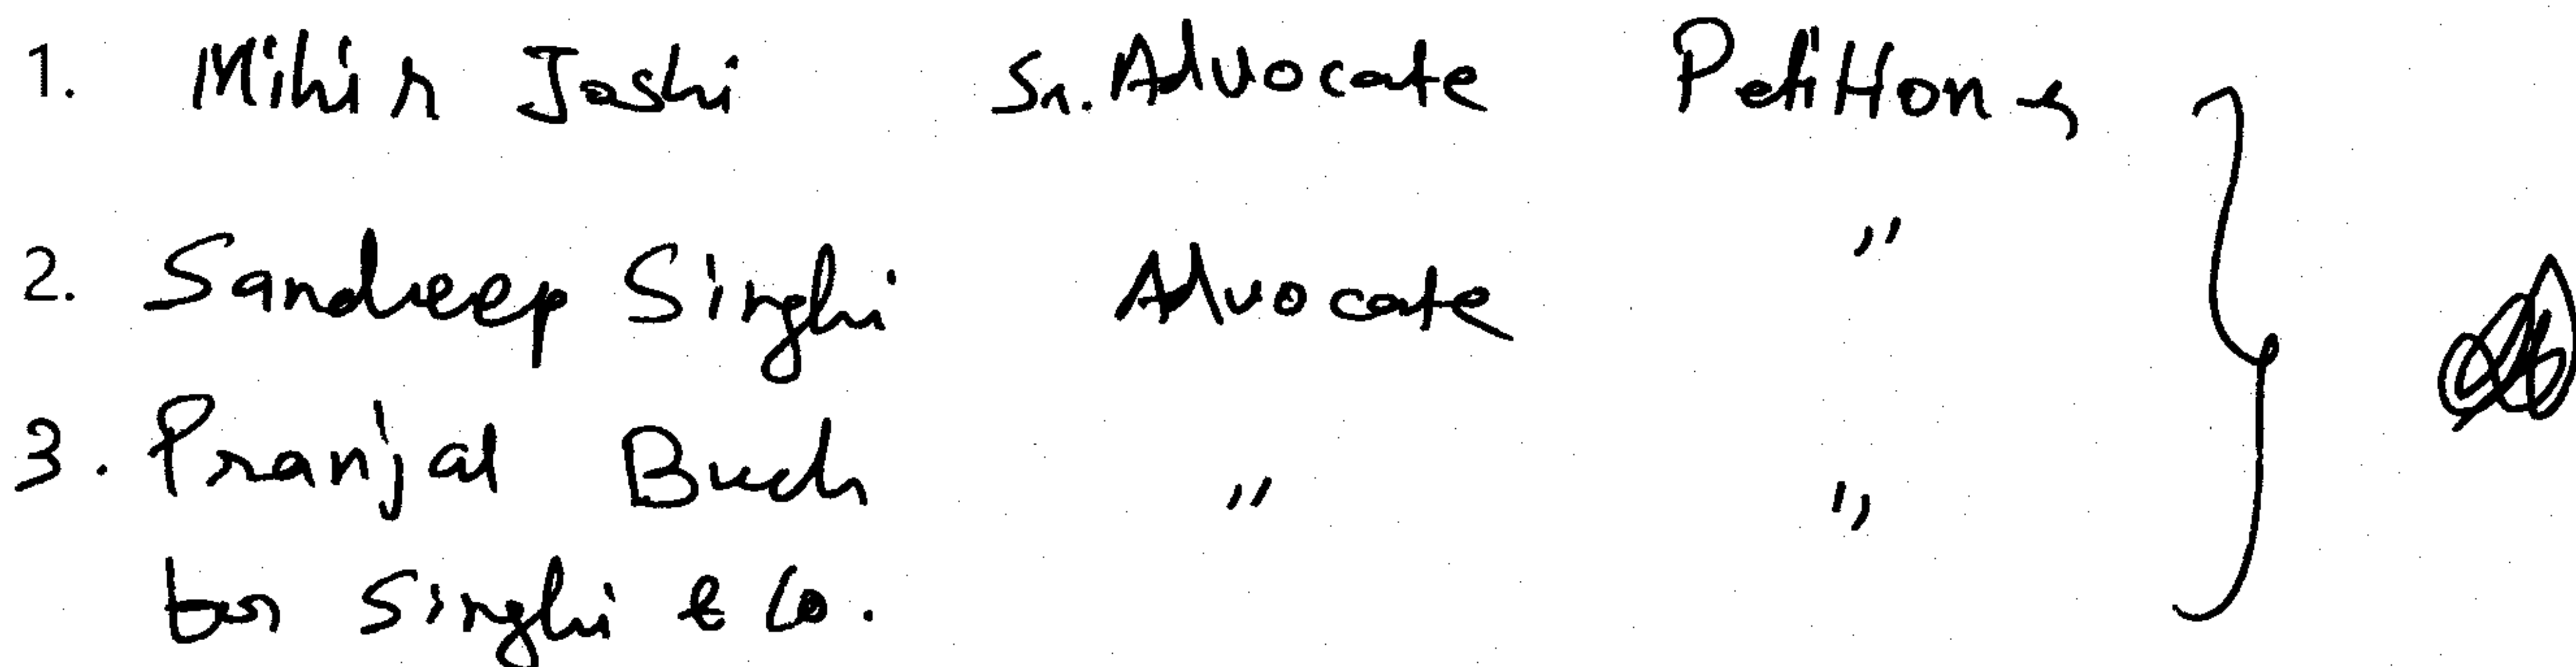 1. Mihir Joshi Sr. Advocate Petitioner
2. Sandeep Singhi Advocate "
3. Pranjal Buch " "
for Singhi & Co.